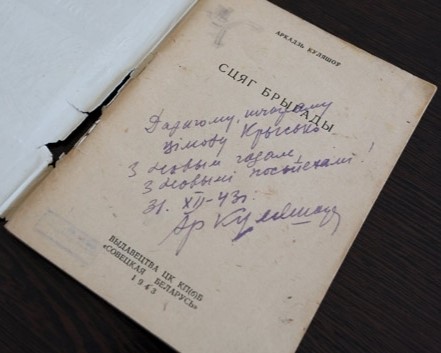 АРКАДЗЬ КУЛЯШОЎ
СЦЯГ БРЫГАДЫ
Дарагому
Цімоху Крысько
З новым годам,
з новымі поспехамі!
31. XII-43 г.
Ар Куляшоў
ВЫДАВЕЦТВА ЦК КП(б)Б
«СОВЕЦКАЯ БЕЛАРУСЬ»
1943